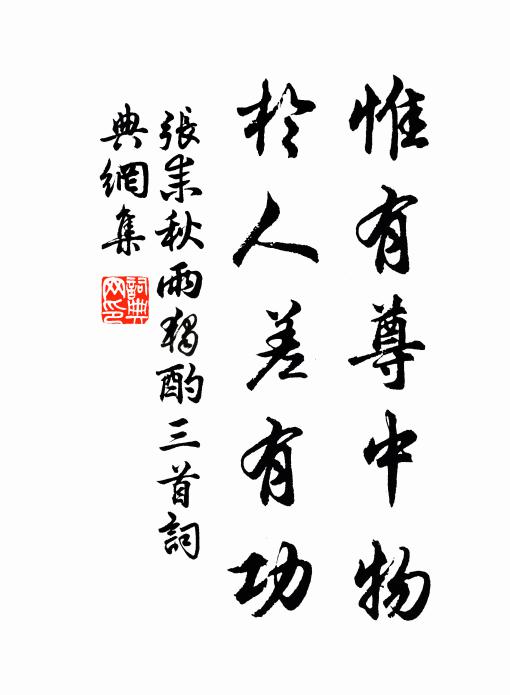 惟有尊中物
於人差有功
張耒秋雨獨酌三首詞
典網集
詞典網印